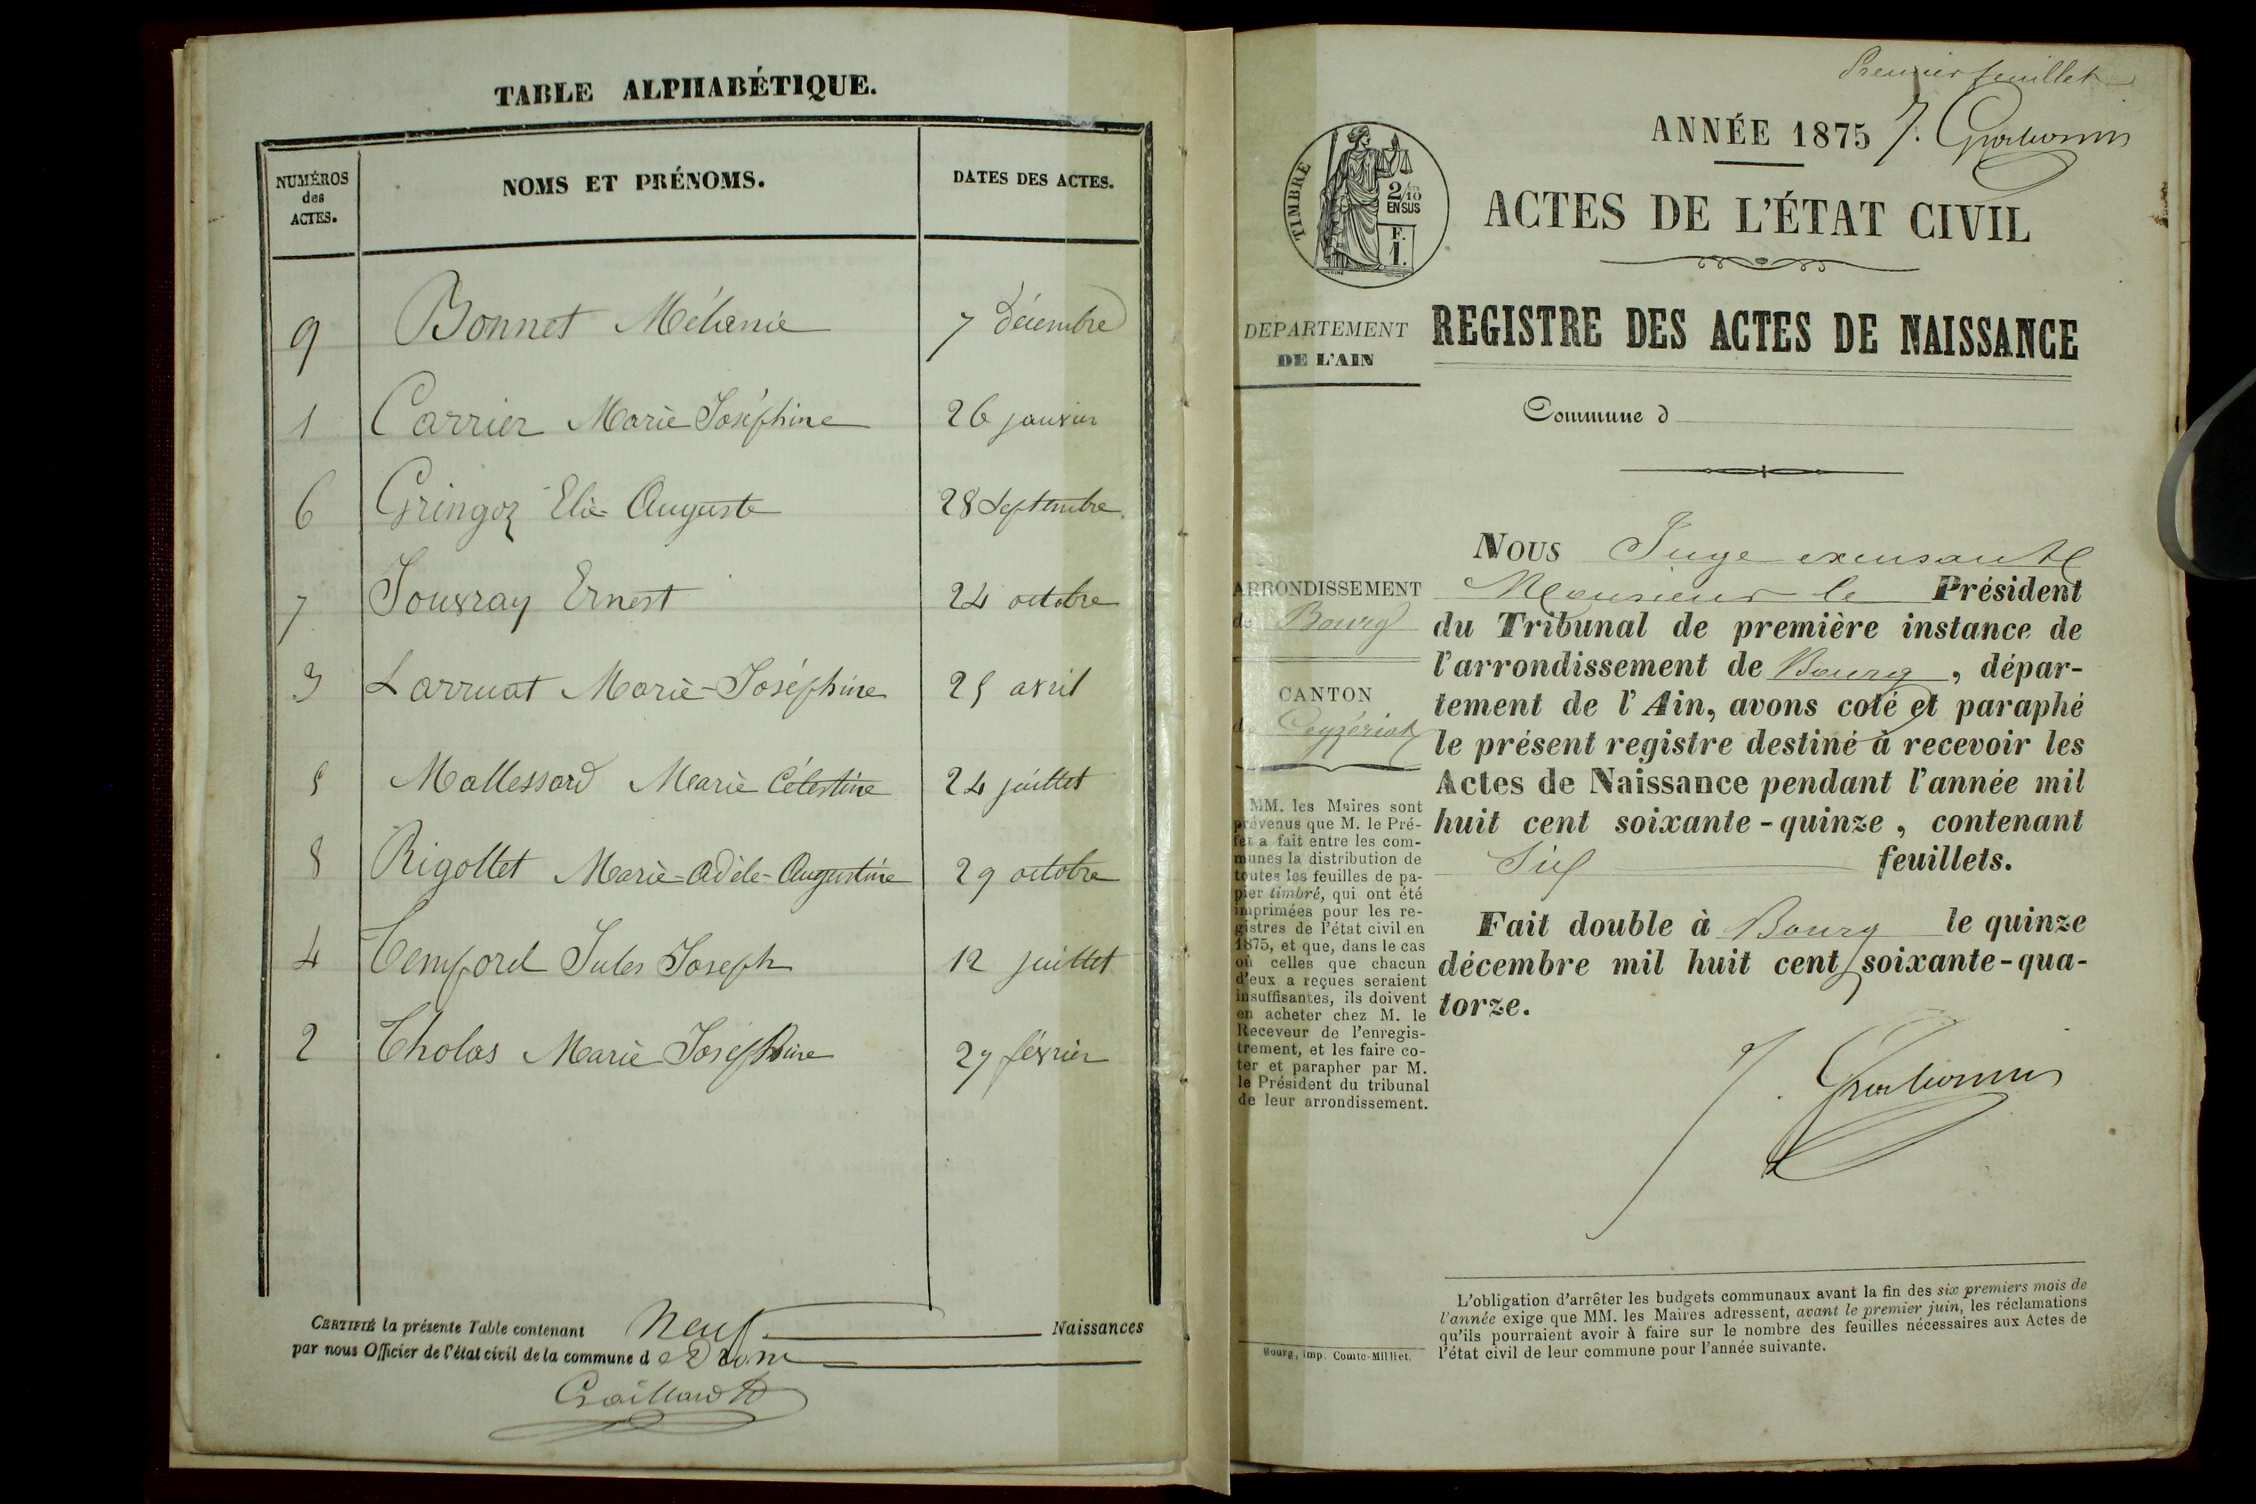 TABLE ALPHABÉTIQUE.
NUMÉROS des ACTES. NOMS ET PRÉNOMS. DATES DES ACTES.
9 Bonnet Mélanie 7 Décembre
1 Carrier Marie Joséphine 26 janvier
6 Gringoz Elie Auguste 28 Septembre
7 Jouvray Ernest 24 octobre
3 Larruat Marie-Joséphine 25 avril
5 Mallessard Marie Célestine 24 juillet
8 Rigollet Marie-Adèle-Augustine 29 octobre
4 Temporel Jules Joseph 12 juillet
2 Tholas Marie Joséphine 27 février
CERTIFIÉ la présente Table contenant Neuf Naissances
par nous Officier de l'état civil de la commune de Drom
Premier feuillet
ANNÉE 1875
TIMBRE
2/10
EN SUS
F.
1.
ACTES DE L'ÉTAT CIVIL
DEPARTEMENT
DE L'AIN
REGISTRE DES ACTES DE NAISSANCE
Commune d
ARRONDISSEMENT
de Bourg
CANTON
de Ceyzériat
MM. les Maires sont
prévenus que M. le Pré-
fet a fait entre les com-
munes la distribution de
toutes les feuilles de pa-
pier timbré, qui ont été
imprimées pour les re-
gistres de l'état civil en
1875, et que, dans le cas
où celles que chacun
d'eux a reçues seraient
insuffisantes, ils doivent
en acheter chez M. le
Receveur de l'enregis-
trement, et les faire co-
ter et parapher par M.
le Président du tribunal
de leur arrondissement.
Bourg, imp. Comte-Milliet.
NOUS Juge
Monsieur le Président
du Tribunal de première instance de
l'arrondissement de Bourg, dépar-
tement de l'Ain, avons coté et paraphé
le présent registre destiné à recevoir les
Actes de Naissance pendant l'année mil
huit cent soixante-quinze, contenant
Six feuillets.
Fait double à Bourg le quinze
décembre mil huit cent soixante-qua-
torze.
L'obligation d'arrêter les budgets communaux avant la fin des six premiers mois de
l'année exige que MM. les Maires adressent, avant le premier juin, les réclamations
qu'ils pourraient avoir à faire sur le nombre des feuilles nécessaires aux Actes de
l'état civil de leur commune pour l'année suivante.